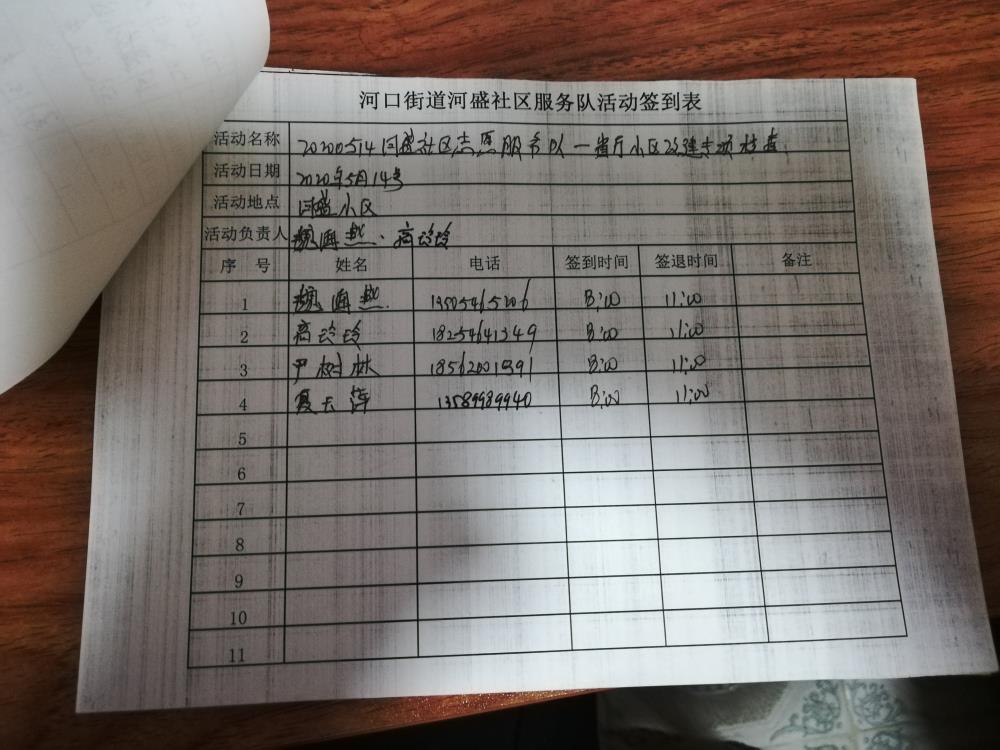 河口街道河盛社区服务队活动签到表
活动名称 20200514河盛社区志愿服务队—省厅小区改建专项检查
活动日期 2020年5月14号
活动地点 河盛小区
活动负责人 魏海燕、高玲玲
序号 姓名 电话 签到时间 签退时间 备注
1 魏海燕 8:00 11:00
2 高玲玲 18254641349 8:00 11:00
3 尹树林 18562001591 8:00 11:00
4 夏天萍 13589989940 8:00 11:00
5
6
7
8
9
10
11